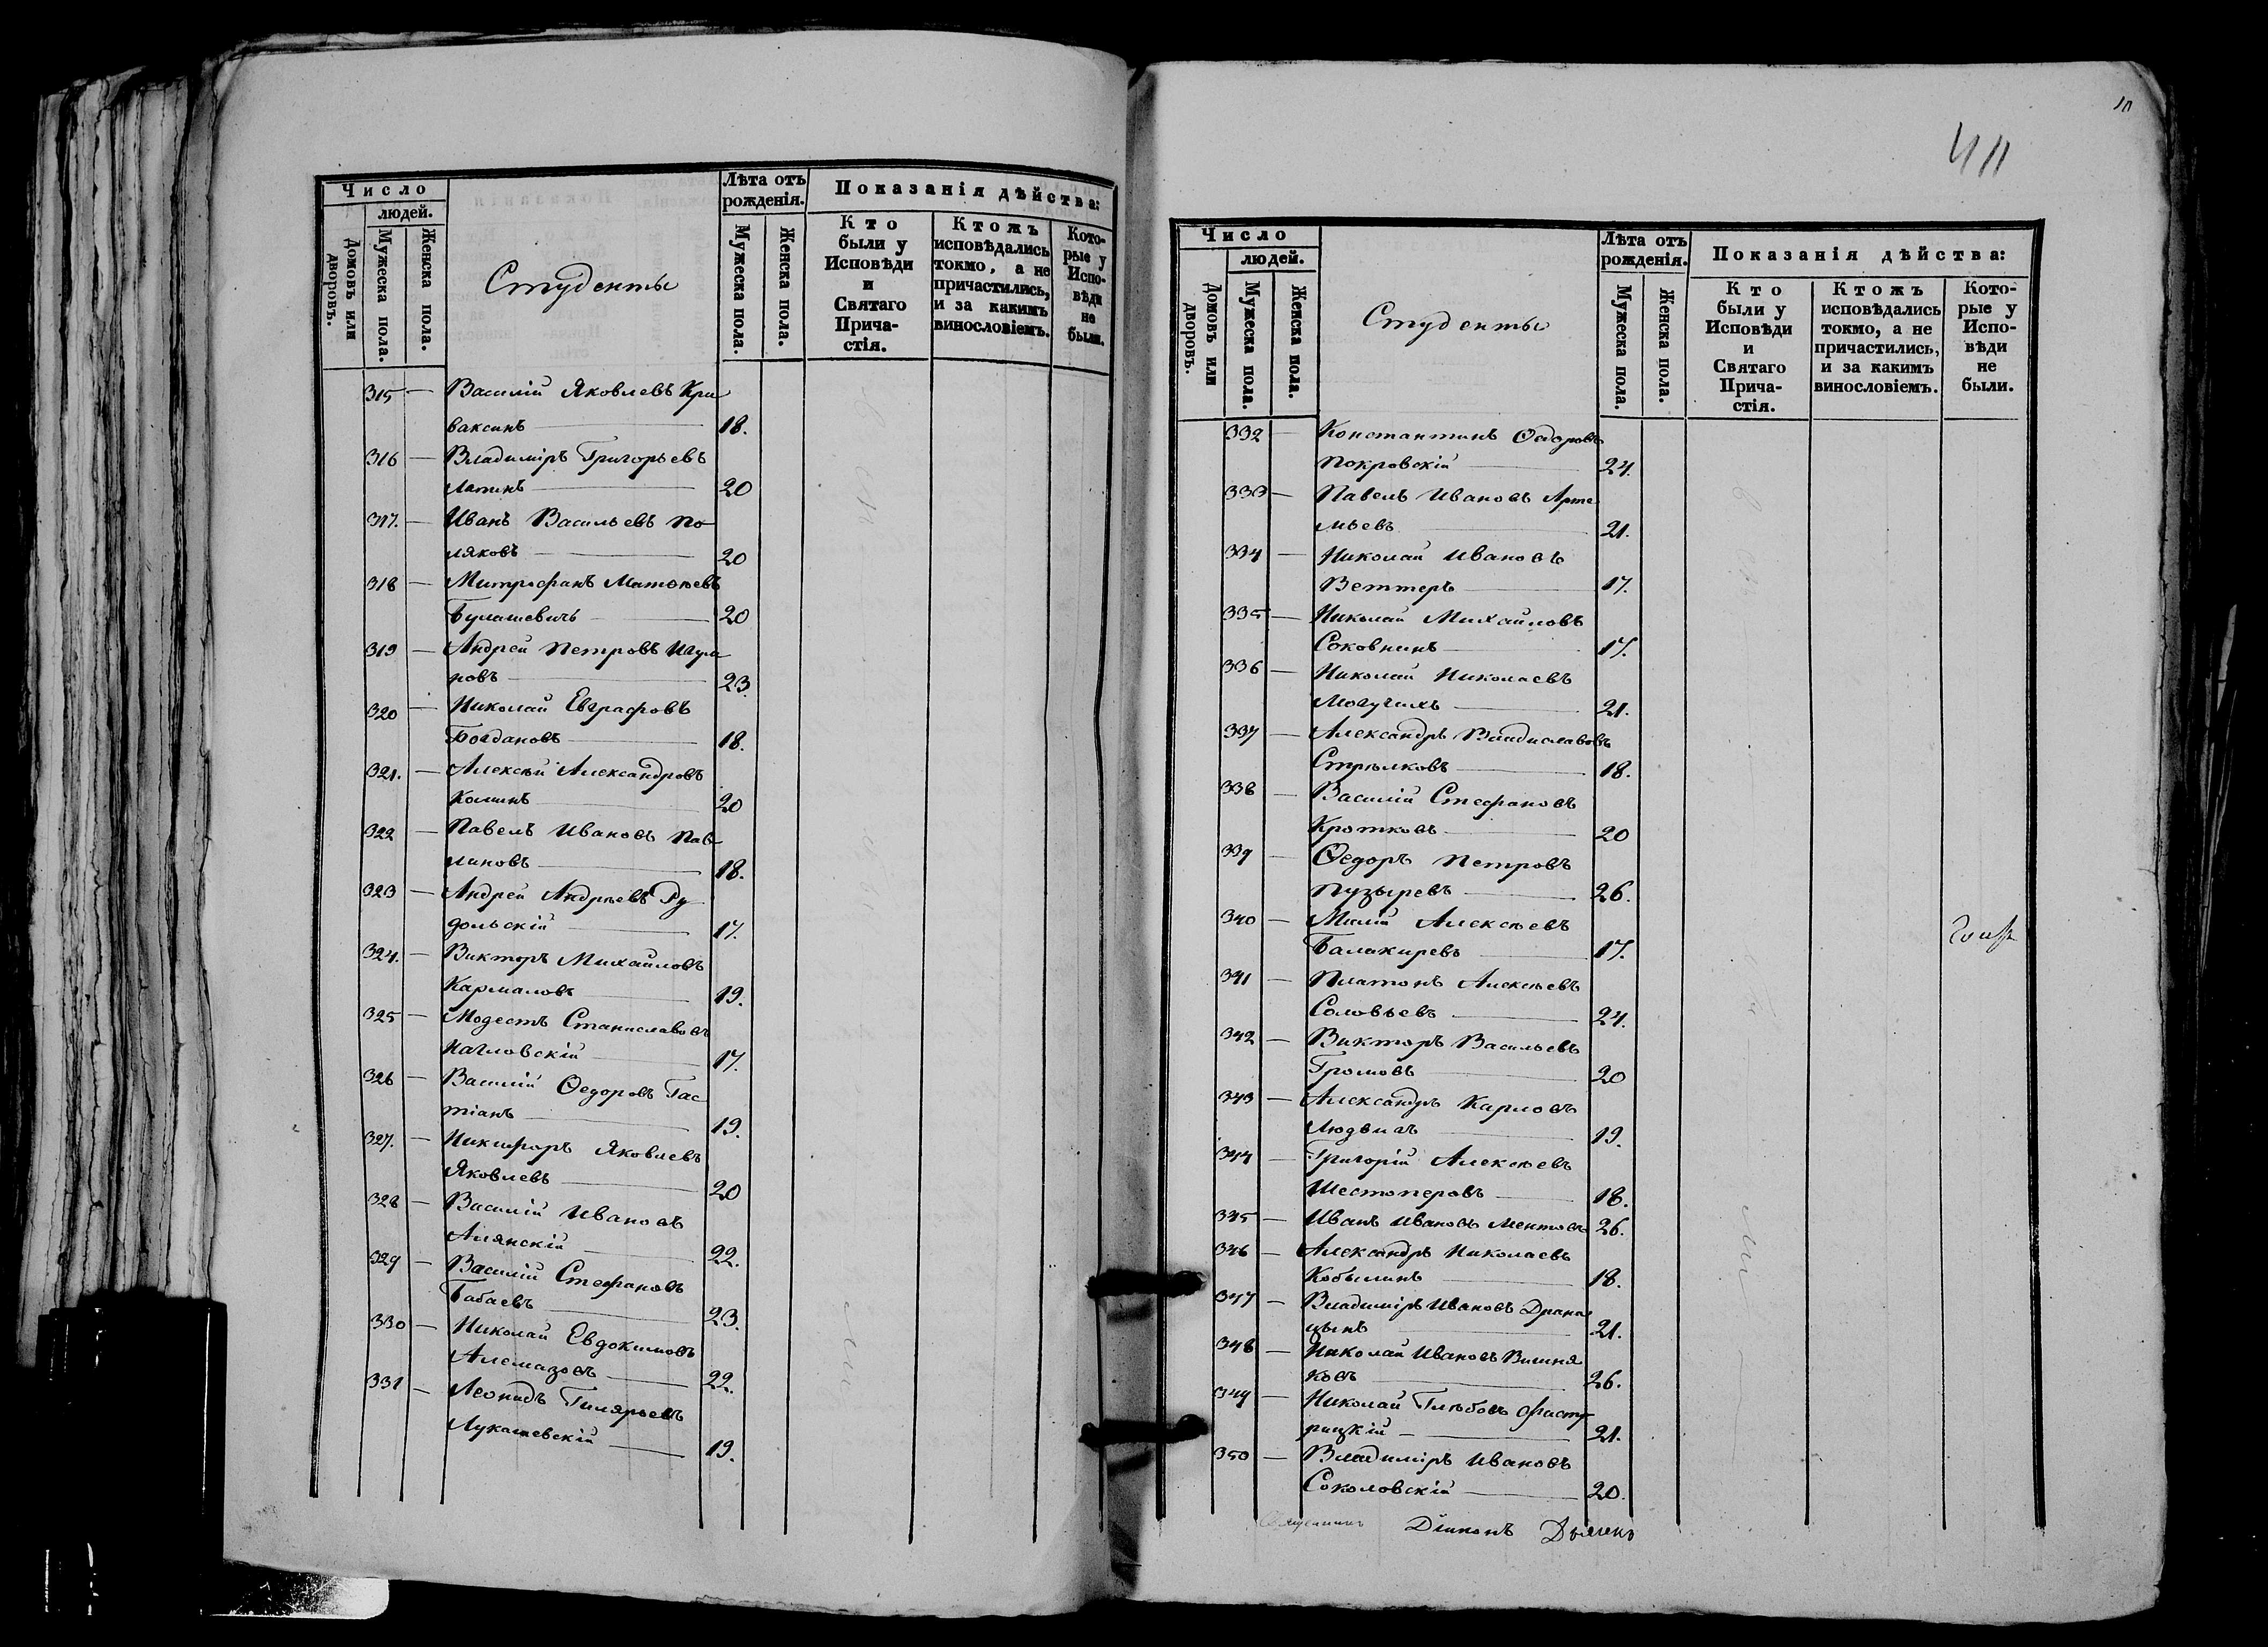 Число
людей.
Домовъ или дворовъ.
Мужеска пола.
Женска пола.
Студенты
Лѣта отъ
рожденія.
Мужеска пола.
Женска пола.
Показанія дѣйства:
Кто
были у
Исповѣди
и
Святаго
Прича-
стія.
Ктожъ
исповѣдались
токмо, а не
причастились,
и за какимъ
винословіемъ.
Кото-
рые у
Испо-
вѣди
не
были.
315 — Василій Яковлевъ Кри
ваксинъ — 18.
316 — Владиміръ Григорьевъ
Лапинъ — 20
317. — Иванъ Васильевъ По-
ляковъ — 20
318 — Митрофанъ Матвѣевъ
Булашевичь — 20
319 — Андрей Петровъ
ровъ — 23.
320 — Николай Евграфовъ
Богдановъ — 18.
321. — Алексѣй Александровъ
20
322 — Павелъ Ивановъ Пав-
линовъ — 18.
323 — Андрей Андрѣевъ Ру-
дольскій — 17.
324. — Викторъ Михайловъ
Кармаловъ — 19.
325 — Модестъ Станиславовъ
Нагловскій — 17.
326 — Василій Ѳедоровъ Гас
тіанъ — 19.
327. — Никифоръ Яковлевъ
Яковлевъ — 20
328 — Василій Ивановъ
Алянскій — 22.
329 — Василій Стефановъ
Бабаевъ — 23.
330 — Николай Евдокимовъ
Алемазовъ — 22.
331 — Леонидъ Гилярьевъ
Лукашевскій — 19.
Число
людей.
Домовъ или дворовъ.
Мужеска пола.
Женска пола.
Студенты
Лѣта отъ
рожденія.
Мужеска пола.
Женска пола.
Показанія дѣйства:
Кто
были у
Исповѣди
и
Святаго
Прича-
стія.
Ктожъ
исповѣдались
токмо, а не
причастились,
и за какимъ
винословіемъ.
Кото-
рые у
Испо-
вѣди
не
были.
332 — Константинъ Ѳедоровъ
Покровскій — 24.
333 — Павелъ Ивановъ Арте
мьевъ — 21.
334 — Николай Ивановъ
Веттеръ — 17.
335 — Николай Михайловъ
Соковнинъ — 17.
336 — Николай Николаевъ
Могучихъ — 21.
337 — Александръ Владиславовъ
Стрѣлковъ — 18.
338 — Василій Стефановъ
Кротковъ — 20
339 — Ѳедоръ Петровъ
Пузыревъ — 26.
340 — Милій Алексѣевъ
Балакиревъ — 17.
341 — Платонъ Алексѣевъ
Соловьевъ — 24.
342 — Викторъ Васильевъ
Громовъ — 20
343 — Александръ Карловъ
Людвигъ — 19.
344 — Григорій Алексѣевъ
Шестоперовъ — 18.
345 — Иванъ Ивановъ Ментовъ 26.
346 — Александръ Николаевъ
Кобылинъ — 18.
347 — Владиміръ Ивановъ Драни
цынъ — 21.
348 — Николай Ивановъ Вишня
ковъ — 26.
349 — Николай Глѣбовъ
рицкій — 21.
350 — Владиміръ Ивановъ
Соколовскій — 20.
Діаконъ